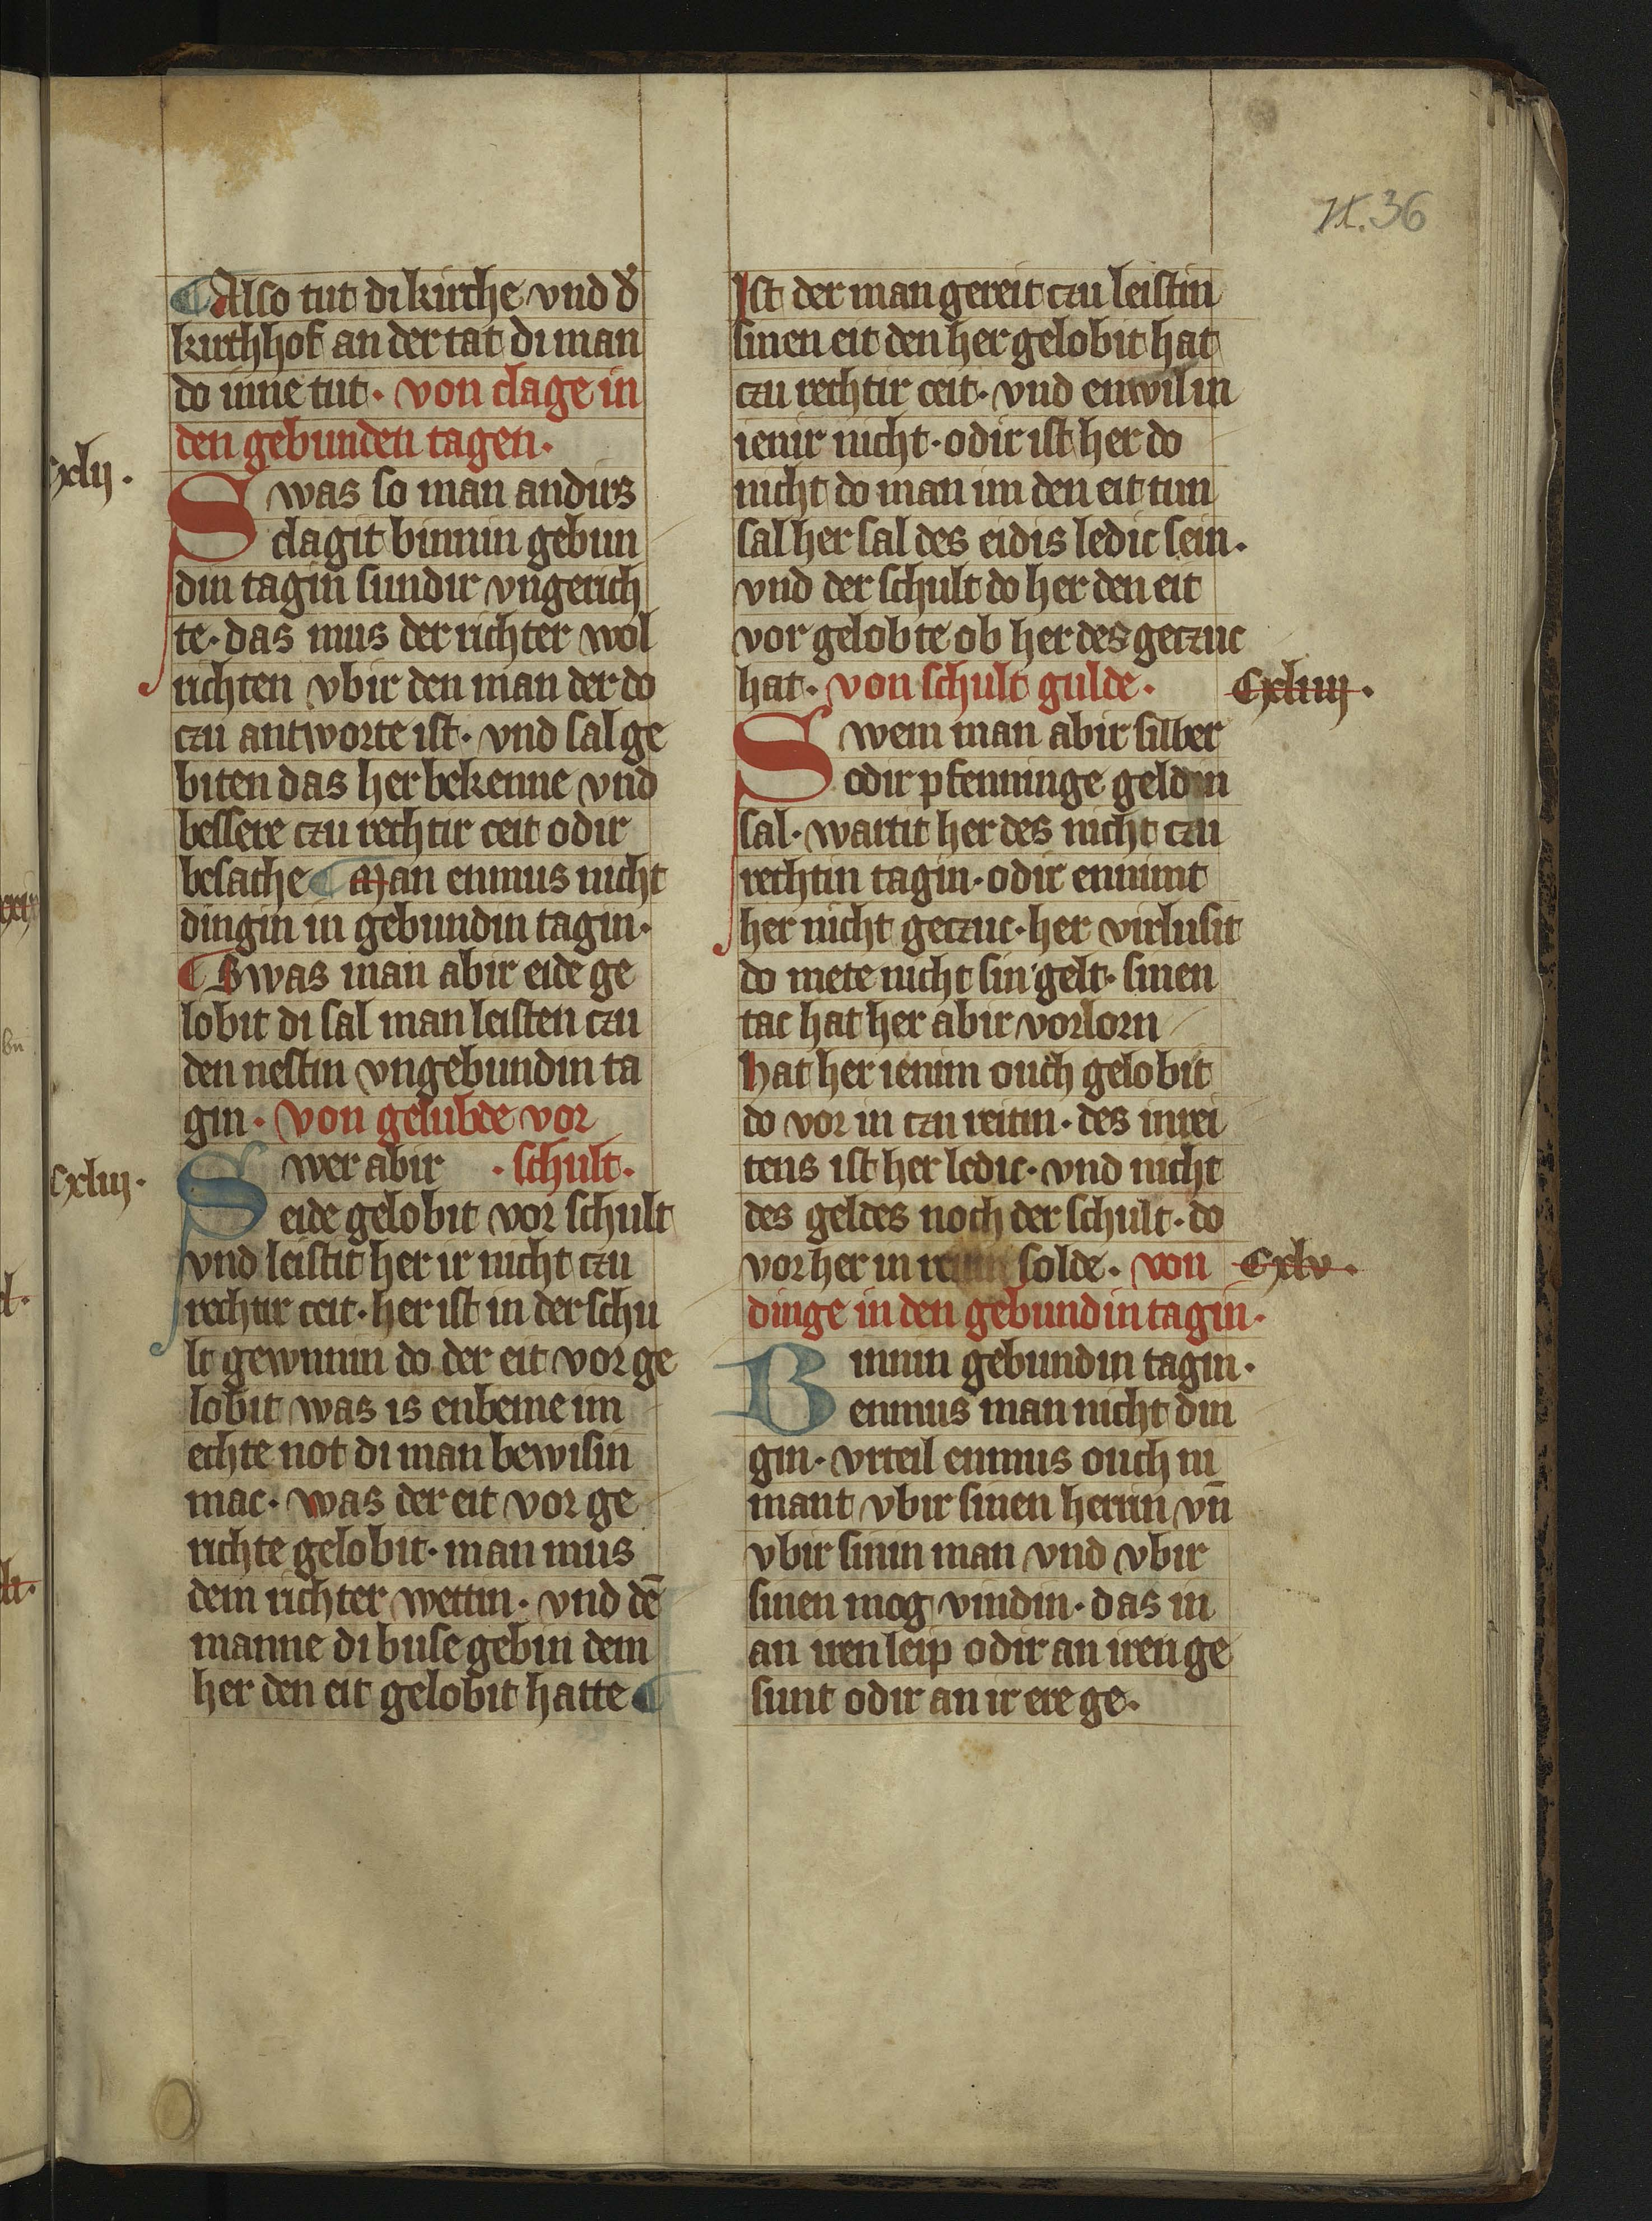 II.36
¶ Also tut di kirche vnd d'
kirchhof an der tat di man
do inne tut· von clage in
den gebunden tagen·
cxlij·
Swas so man andirs
clagit binnin gebun
din tagin sundir vngerich
te· das mus der richter wol
richten vbir den man der do
czu antworte ist· vnd sal ge
biten das her bekenne vnd
bessere czu rechtir ceit odir
besache ¶ Man enmus nicht
dingin in gebundin tagin·
¶ Swas man abir eide ge
lobit di sal man leisten czu
den nestin vngebundin ta
gin· von gelubde vor
Swer abir · schult·
cxliij·
eide gelobit vor schult
vnd leistit her ir nicht czu
rechtir ceit· her ist in der schu
lt gewnnin do der eit vor ge
lobit was is enbeme im
echte not di man bewisin
mac· was der eit vor ge
richte gelobit· man mus
dem richter wettin· vnd dē
manne di buse gebin dem
her den eit gelobit hatte ¶
Ist der man gereit czu leistin
sinen eit den her gelobit hat
czu rechtir ceit· vnd enwil in
ienir nicht· odir ist her do
nicht do man im den eit tun
sal her sal des eidis ledic sein·
vnd der schult do her den eit
vor gelobte ob her des geczuc
hat· von schult gulde·
Cxliiij·
Swem man abir silber
odir pfenninge geldin
sal· wartit her des nicht czu
rechtin tagin· odir ennimt
her nicht geczuc· her virlusit
do mete nicht sin gelt· sinen
tac hat her abir vorlorn
hat her ienim ouch gelobit
do vor in czu reitin· des inrei
tens ist her ledic· vnd nicht
des geldes noch der schult· do
vor her in solde· von
Cxlv·
dinge in den gebundin tagin·
Binnin gebundin tagin·
enmus man nicht din
gin· vrteil enmus ouch ni
mant vbir sinen herrin vn̄
vbir sinin man vnd vbir
sinen mog vindin· das in
an iren leip odir an iren ge
sunt odir an ir ere ge·